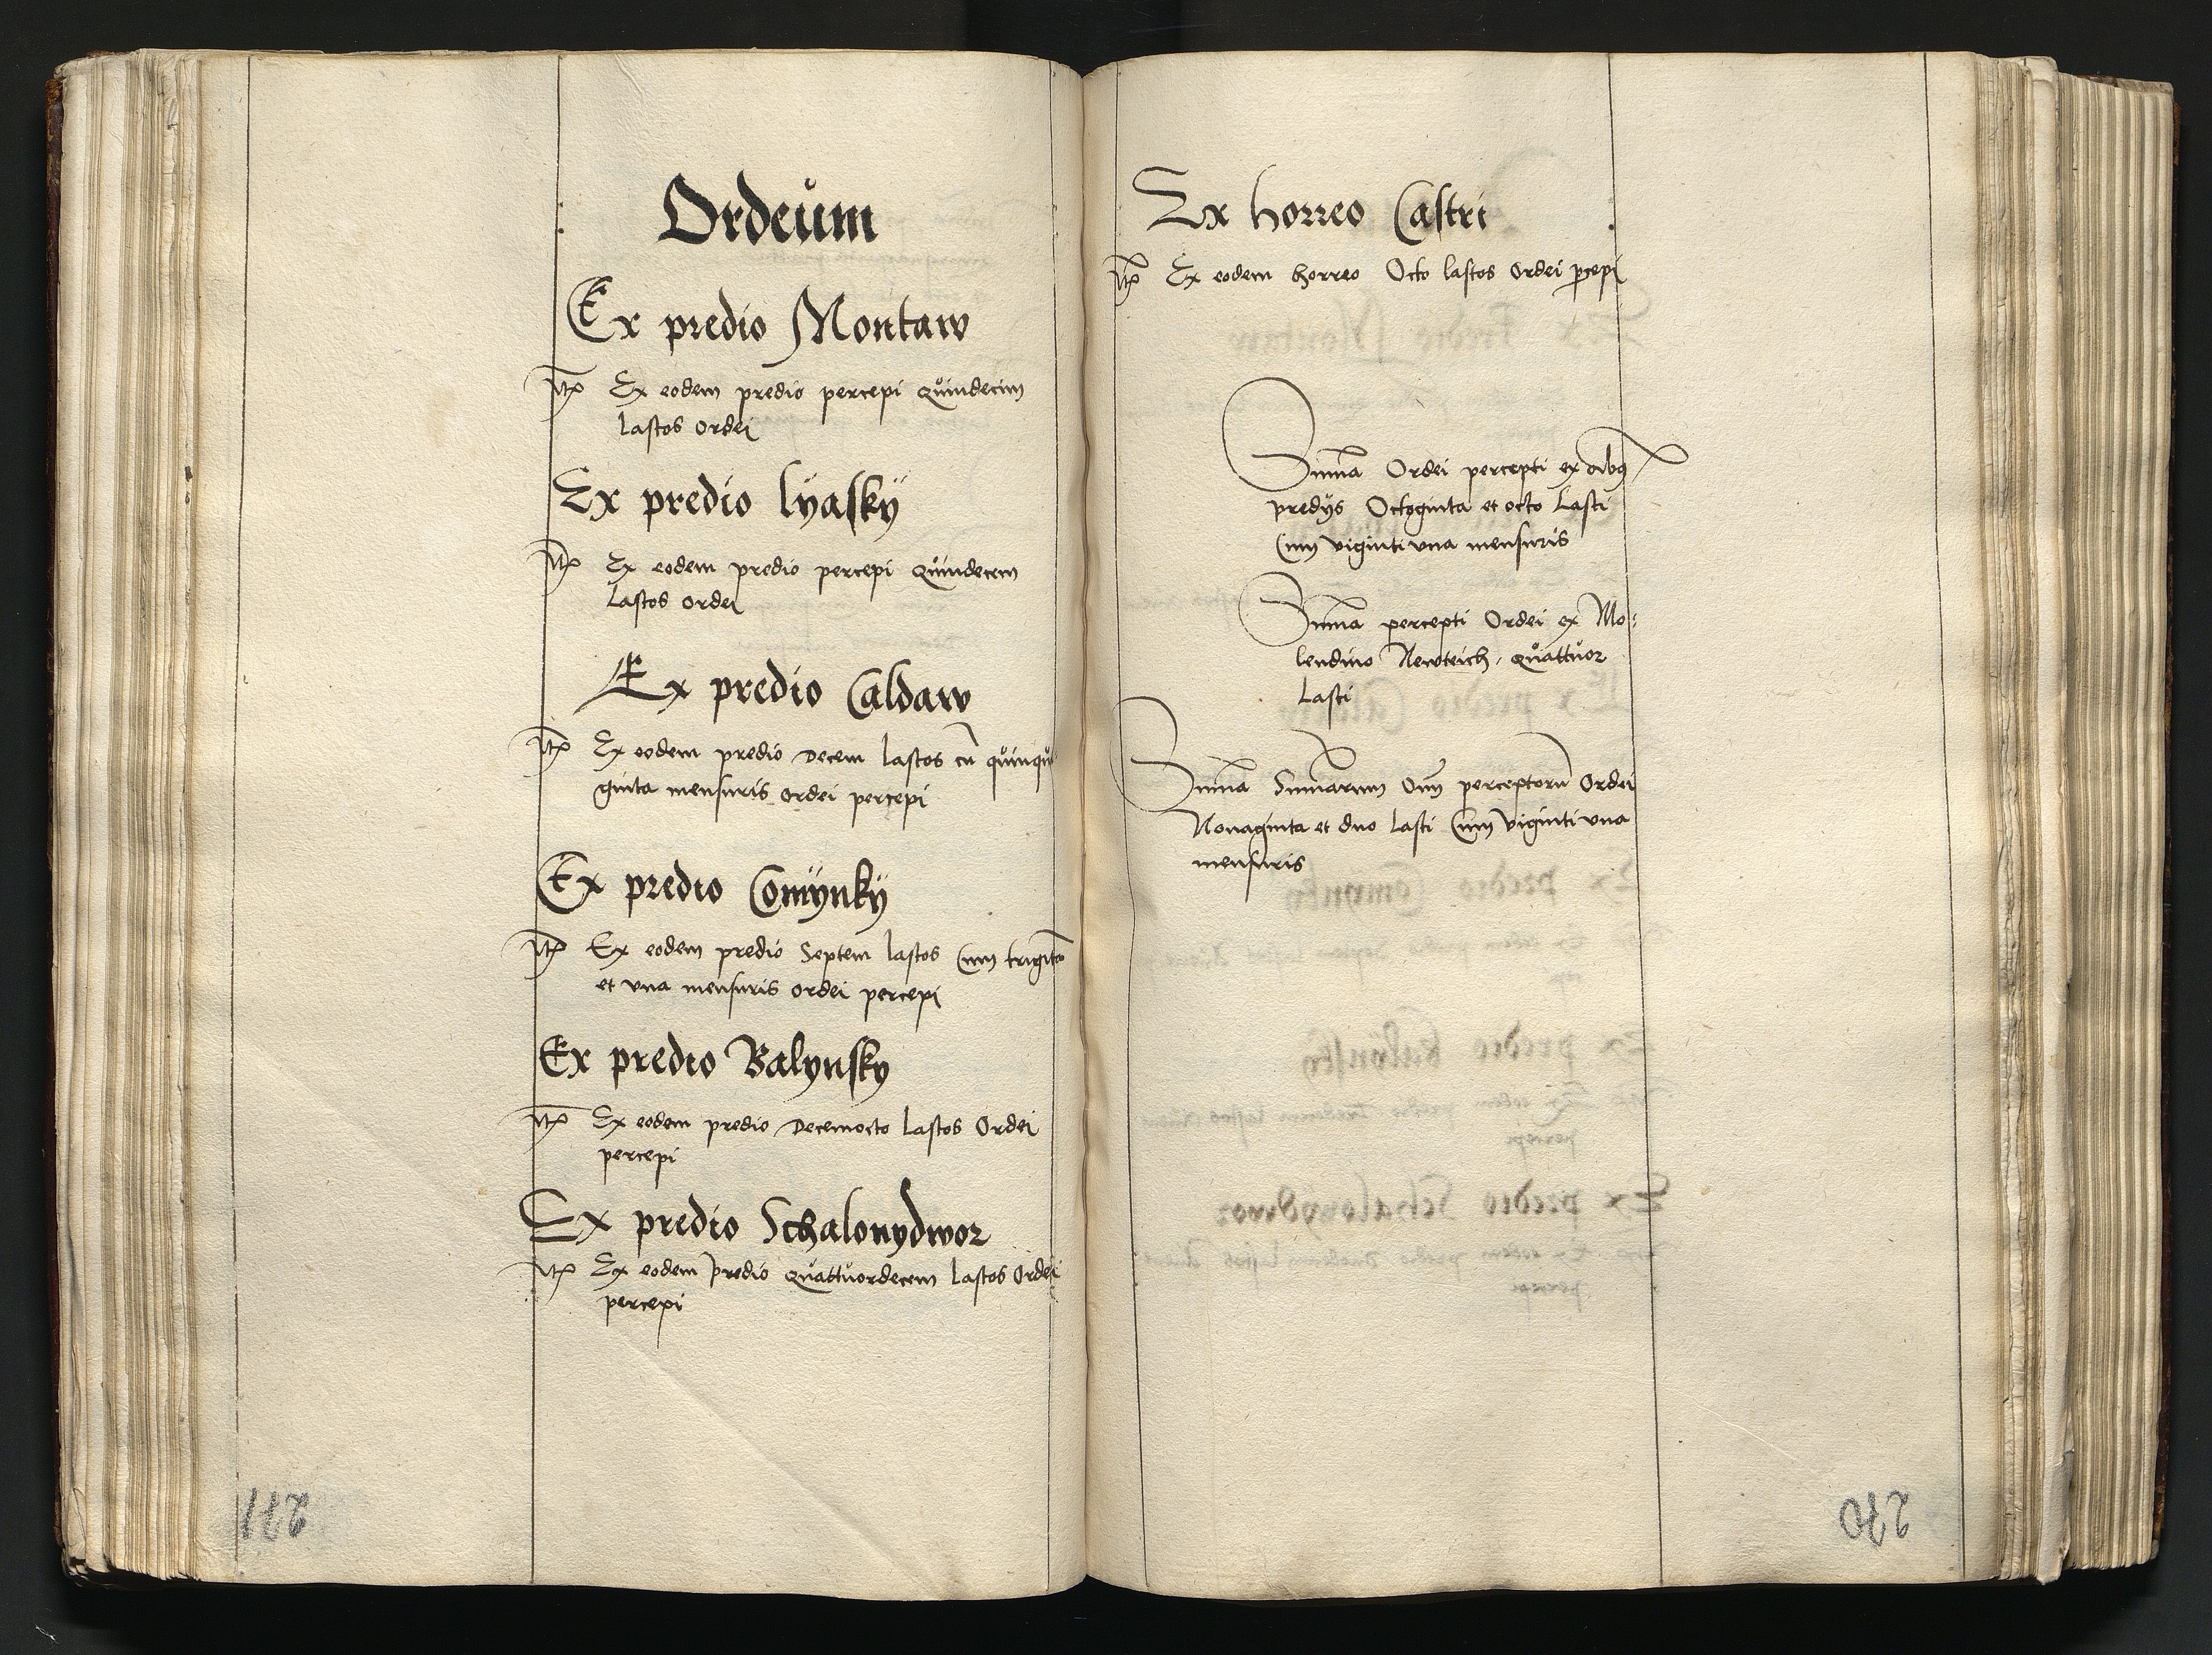 Ordeum
Ex predio Montaw
Itē Ex eodem predio percepi quindecim
lastos ordei
Ex predio lÿaskÿ
Itē Ex eodem predio percepi quindecem
lastos ordei
Ex predio Caldaw
Itē Ex eodem predio decem lastos cū quinqua
ginta mensuris ordei percepi
Ex predio Comÿnkÿ
Itē Ex eodem predio Septem lastos Cum triginta
et vna mensuris ordei percepi
Ex predio Balynsky
Itē Ex eodem predio Decemocto lastos Ordei
percepi
Ex predio Schalonydwor
Itē Ex eodem predio quattuordecem lastos Ordei
percepi
271
Ex horreo Castri
Itē Ex eodem horreo Octo lastos ordei ꝑcepi
Sum̄a Ordei percepti ex oībꝫ
predÿs Octoginta et octo Lasti
Cum viginti vna mensuris
Sum̄a percepti Ordei ex Mo:
lendino Newteich, quattuor
Lasti
Sum̄a Sum̄arum Om̄ perceptorū Ordei
Nonaginta et duo Lasti Cum viginti vna
mensuris
270